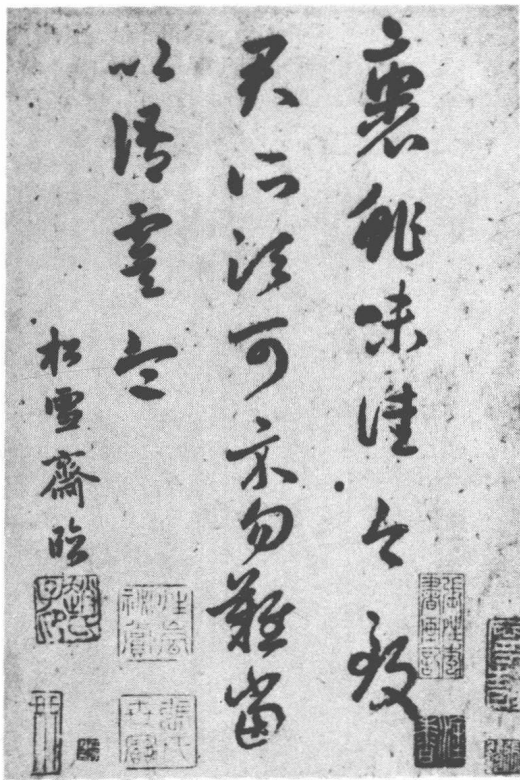 裹鮓味佳今致
君所須可示勿難當
以語虞令
松雪齋臨
趙氏子昂